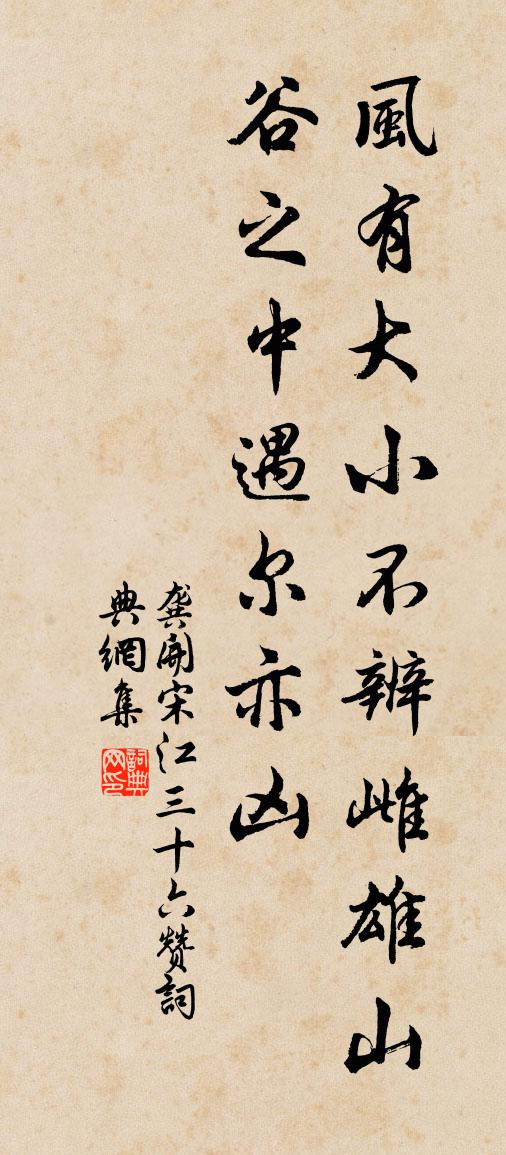 風有大小不辨雌雄山
谷之中遇尔亦凶
龚開宋江三十六赞詞
典網集
詞典
网印